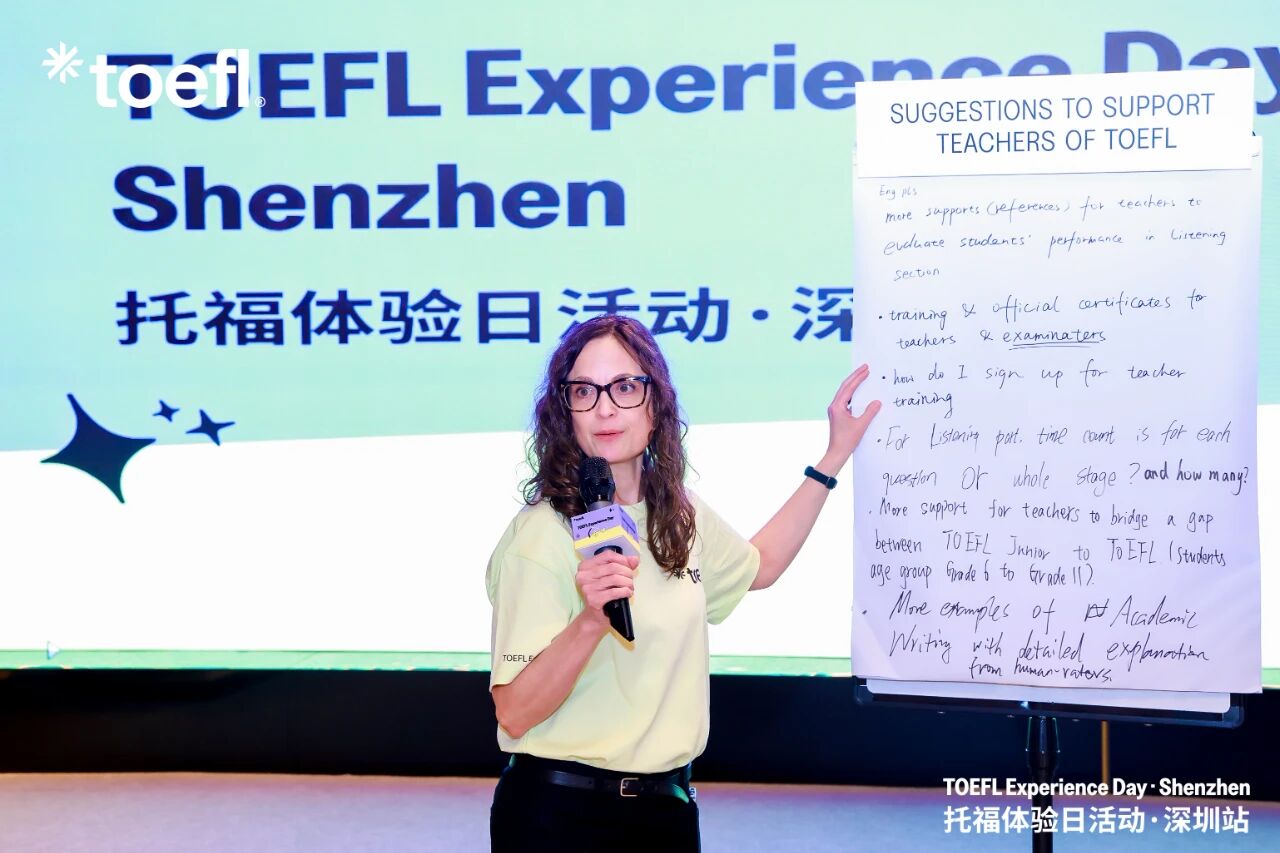 toefl®
TOEFL Experience Day
Shenzhen
托福体验日活动·深
SUGGESTIONS TO SUPPORT
TEACHERS OF TOEFL
Eng pls
more supports (references) for teachers to
evaluate students' performance in Listening
section
• training & official certificates to
teachers & examinaters
• how do I sign up for teacher
training
• For Listening part. time count is for each
question Or whole stage? and how many?
• More support for teachers to bridge a gap
between TOEFL Junior to ToEFL (students
age group Grade 6 to Grade 11).
• More examples of Academic
Writing with detailed explanation
from human-raters.
TOEFL Experience Day
TOEFL E
TOEFL Experience Day · Shenzhen
托福体验日活动·深圳站